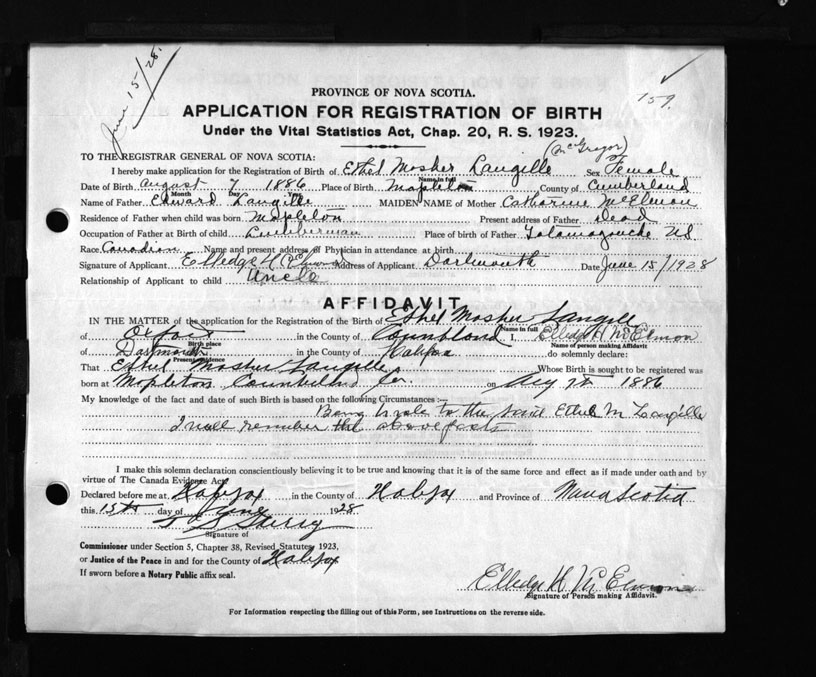 June 15/28.
159.
PROVINCE OF NOVA SCOTIA.
APPLICATION FOR REGISTRATION OF BIRTH
Under the Vital Statistics Act, Chap. 20, R. S. 1923.
(McGregor)
TO THE REGISTRAR GENERAL OF NOVA SCOTIA:
I hereby make application for the Registration of Birth of Ethel Mosher Langille Sex Female
Name in full
Date of Birth August 7 1886 Place of Birth Mapleton County of Cumberland
Month Day Year
Name of Father Edward Langille MAIDEN NAME of Mother Catharine McElmon
Residence of Father when child was born Mapleton Present address of Father Dead
Occupation of Father at Birth of child Lumberman Place of birth of Father Tatamagouche NS
Race Canadian Name and present address of Physician in attendance at birth
Signature of Applicant Elledge H McElmon Address of Applicant Dartmouth Date June 15/1928
Relationship of Applicant to child Uncle
AFFIDAVIT
IN THE MATTER of the application for the Registration of the Birth of Ethel Mosher Langill
Name in full
of Oxford in the County of Cumbland I, Elledge H McElmon
Birth place Name of person making Affidavit
of Dartmouth in the County of Halifax do solemnly declare:
Present residence
That Ethel Mosher Langille Whose Birth is sought to be registered was
born at Mapleton Cumberland Co. on Aug 7th 1886
My knowledge of the fact and date of such Birth is based on the following Circumstances:—
Being Uncle to the said Ethel M Langille
I well remember the above facts
I make this solemn declaration conscientiously believing it to be true and knowing that it is of the same force and effect as if made under oath and by
virtue of The Canada Evidence Act.
Declared before me at Halifax in the County of Halifax and Province of Nova Scotia
this 15th day of June 1928
Sterry
Signature of
Commissioner under Section 5, Chapter 38, Revised Statutes, 1923,
or Justice of the Peace in and for the County of Halifax
If sworn before a Notary Public affix seal.
Elledge H McElmon
Signature of Person making Affidavit.
For Information respecting the filling out of this Form, see Instructions on the reverse side.